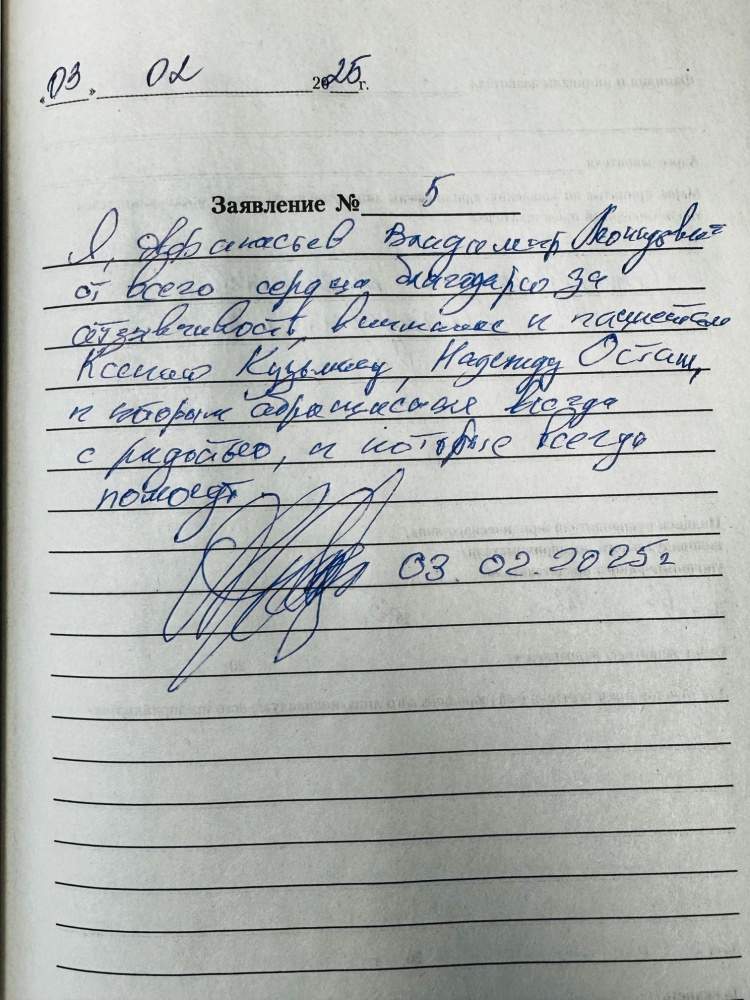 «03» 02 2025 г.
Заявление № 5
Я, Афанасьев Владимир
от всего сердца благодарю за
отзывчивость, внимание к пациентам
Ксению Кузьмину, Надежду Осташ,
к которым обращаешься всегда
с радостью, и которые всегда
помогут
03.02.2025г